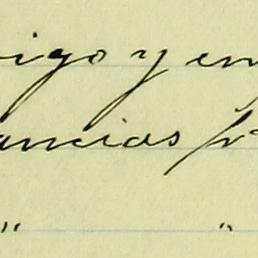 igo y en
ancias
" "